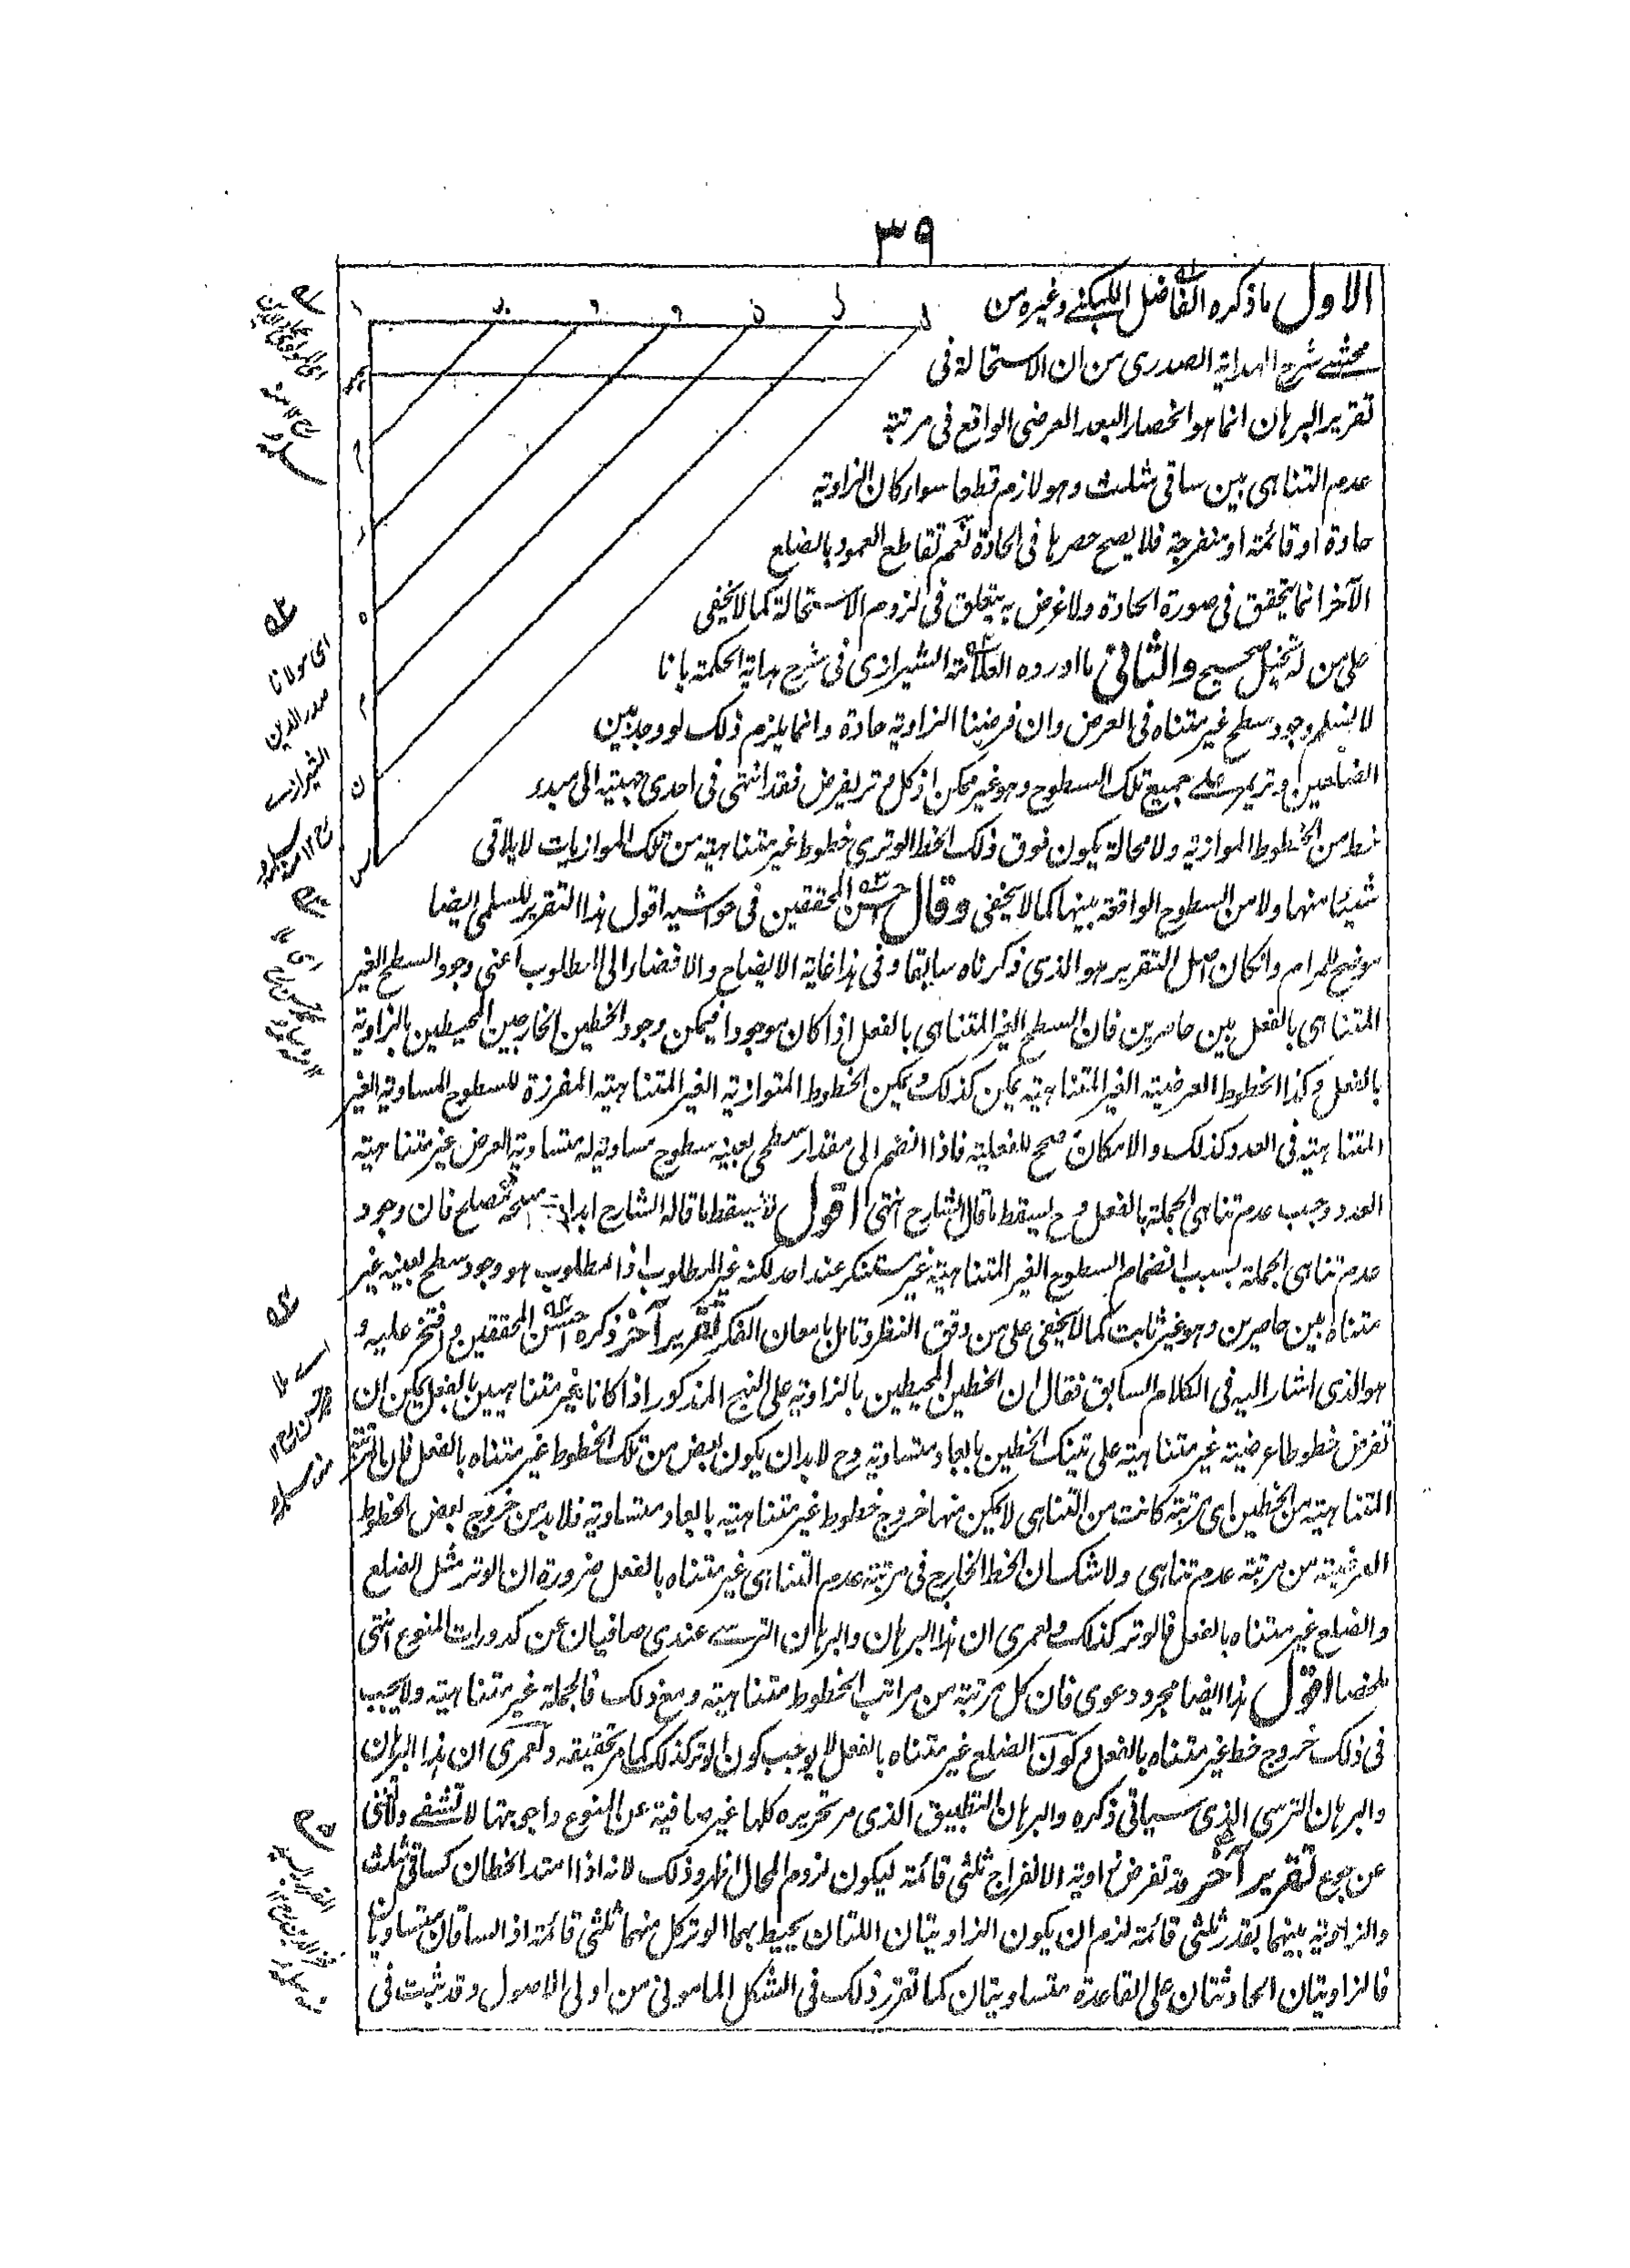 ٣٩
الاول ما ذكره الفاضل اللبكني وغيره من
محشي شرح الهداية الصدري من ان الاستحالة في
تقرير البرهان انما هو انحصار البعد العرضي الواقع في مرتبة
عدم التناهي بين ساقي مثلث وهو لازم قطعا سواء كان الزاوية
حادة او قائمة او منفرجة فلا يصح حصرها في الحادة نعم تقاطع العمود بالضلع
الآخر انما يتحقق في صورة الحادة ولا غرض به يتعلق في لزوم الاستحالة كما لا يخفى
على من له تخيل صحيح والثاني ما اورده العلامة الشيرازي في شرح هداية الحكمة بانا
لا نسلم وجود سطح غير متناه في العرض وان فرضنا الزاوية حادة وانما يلزم ذلك لو وجد بين
الضلعين وتر يمر على جميع تلك السطوح وهو غير ممكن اذ كل وتر يفرض فقد انتهى في احدى جهتيه الى مبدء
خط من الخطوط الموازية ولا محالة يكون فوق ذلك الخط الوتري خطوط غير متناهية من تلك الموازيات لا يلاقي
شيئا منها ولا من السطوح الواقعة بينها كما لا يخفى وقال احسن المحققين في حواشيه اقول هذا التقرير للسلمي ايضا
موضح للمرام وان كان اصل التقرير هو الذي ذكرناه سابقا وفي هذا غاية الايضاح والافضاء الى المطلوب اعني وجود السطح الغير
المتناهي بالفعل بين حاصرين فان السطح الغير المتناهي بالفعل اذا كان موجودا فيمكن وجود الخطين الخارجين المحيطين بالزاوية
بالفعل وكذا الخطوط العرضية الغير المتناهية يمكن كذلك ويمكن الخطوط المتوازية الغير المتناهية المفرزة للسطوح المساوية الغير
المتناهية في العدد كذلك والامكان مصحح للفعلية فاذا انضم الى مقدار سطحي بعينه سطوح مساوية له متساوية العرض غير متناهية
العدد وجب عدم تناهي الجملة بالفعل وح يسقط ما قال الشارح انتهى اقول لا يسقط ما قاله الشارح ابدا فان وجود
عدم تناهي الجملة بسبب انضمام السطوح الغير المتناهية غير مستنكر عند احد لكنه غير المطلوب اذ المطلوب هو وجود سطح بعينه غير
متناه بين حاصرين وهو غير ثابت كما لا يخفى على من دقق النظر وتامل بامعان الفكر تقرير آخر ذكره احسن المحققين وافتخر عليه و
هو الذي اشار اليه في الكلام السابق فقال ان الخطين المحيطين بالزاوية على النهج المذكور اذا كانا غير متناهيين بالفعل يمكن ان
تفرض خطوط عرضية غير متناهية على تينك الخطين بابعاد متساوية وح لابد ان يكون بعض من تلك الخطوط غير متناه بالفعل فان المرتبة
المتناهية من الخطين اي مرتبة كانت من التناهي لا يمكن منها خروج خطوط غير متناهية بابعاد متساوية فلابد من خروج بعض الخطوط
العرضية من مرتبة عدم تناهي ولا شك ان الخط الخارج في مرتبة عدم التناهي غير متناه بالفعل ضرورة ان الوتر مثل الضلع
والضلع غير متناه بالفعل فالوتر كذلك ولعمري ان هذا البرهان والبرهان الترسي عندي صافيان عن كدورات المنوع انتهى
ملخصا اقول هذا ايضا مجرد دعوى فان كل مرتبة من مراتب الخطوط متناهية ومع ذلك فالجملة غير متناهية ولا يجب
في ذلك خروج خط غير متناه بالفعل وكون الضلع غير متناه بالفعل لا يوجب كون الوتر كذلك كما مر تحقيقه ولعمري ان هذا البرهان
والبرهان الترسي الذي سياتي ذكره والبرهان التطبيق الذي مر تحريره كلها غير صافية عن المنوع واجوبتها لا تشفي ولا تغني
عن جوع تقرير آخر قد تفرض زاوية الانفراج ثلثي قائمة ليكون لزوم المحال اظهر وذلك لانه اذا امتد الخطان كساقي مثلث
والزاوية بينهما بقدر ثلثي قائمة لزم ان يكون الزاويتان اللتان يحيط بهما الوتر كل منهما ثلثي قائمة اذ الساقان متساويان
فالزاويتان الحادثتان على القاعدة متساويتان كما تقرر ذلك في الشكل الماموني من اولى الاصول وقد ثبت في
اي مولانا
صدر الدين
الشيرازي